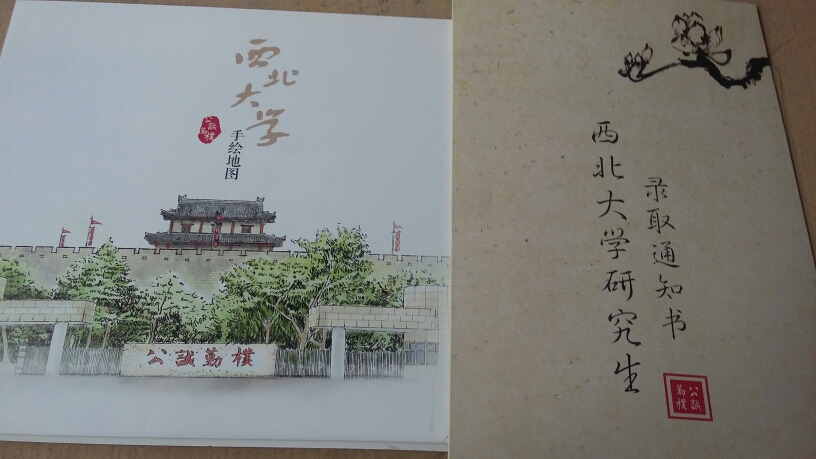 西北大学
公誠勤樸
手绘地图
公誠勤樸
西北大学研究生
录取通知书
公誠勤樸